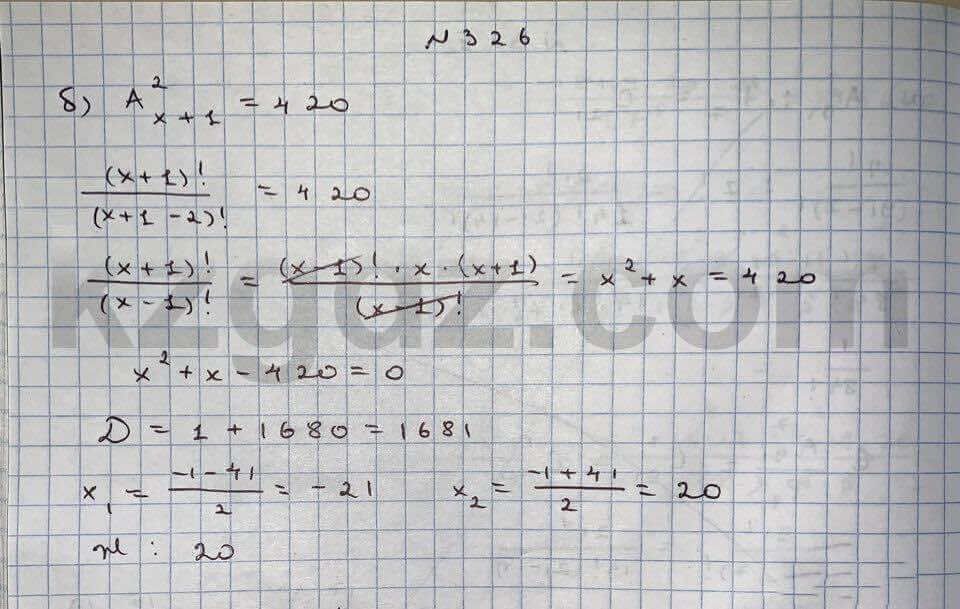 N 326
б) A²ₓ₊₁ = 420
(x+1)! / (x+1-2)! = 420
(x+1)! / (x-1)! = (x-1)! · x · (x+1) / (x-1)! = x² + x = 420
kzgdz.com
x² + x - 420 = 0
D = 1 + 1680 = 1681
x₁ = (-1-41) / 2 = -21 x₂ = (-1+41) / 2 = 20
Ж: 20